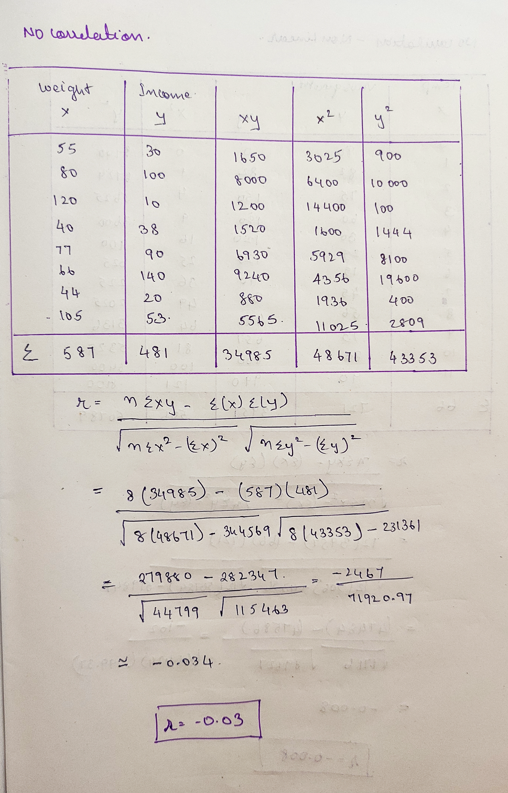 No correlation.
weight x Income y xy x² y²
55 30 1650 3025 900
80 100 8000 6400 10000
120 10 1200 14400 100
40 38 1520 1600 1444
77 90 6930 5929 8100
66 140 9240 4356 19600
44 20 880 1936 400
105 53 5565 11025 2809
Σ 587 481 34985 48671 43353
r = nΣxy - Σ(x)Σ(y) / √nΣx² - (Σx)² √nΣy² - (Σy)²
= 8(34985) - (587)(481) / √8(48671) - 344569 √8(43353) - 231361
= 279880 - 282347 / √44799 √115463 = -2467 / 71920.97
≃ -0.034.
r = -0.03